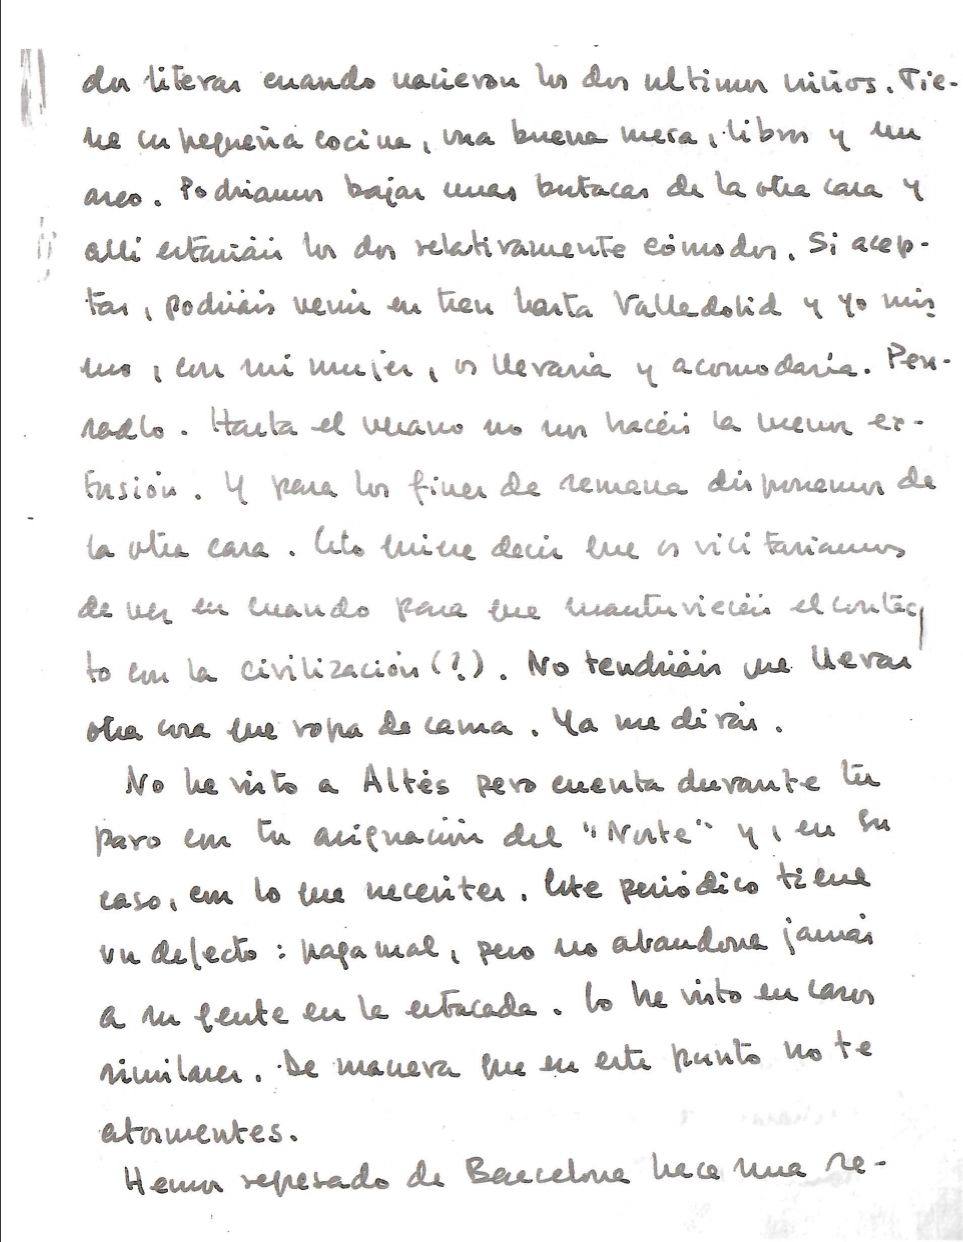 dos literas cuando nacieron los dos ultimos niños. Tie-
ne su pequeña cocina, una buena mesa, libros y un
aseo. Podriamos bajar unas butacas de la otra casa y
allí estariáis los dos relativamente cómodos. Si acep-
tas, podriáis venir en tren hasta Valladolid y yo mis
mo, con mi mujer, os llevaria y acomodaría. Pen-
sadlo. Hasta el verano no nos hacéis la menor ex-
tensión. Y para los fines de semana disponemos de
la otra casa. Esto quiere decir que os visitariamos
de vez en cuando para que mantuvieséis el contac
to con la civilización (!). No tendriáis que llevar
otra cosa que ropa de cama. Ya me dirás.
No he visto a Altés pero cuenta durante tu
paro con tu asignación del "Norte" y, en su
caso, con lo que necesites. Este periódico tiene
un defecto: paga mal, pero no abandona jamás
a su gente en la estacada. Lo he visto en casos
similares. De manera que en este punto no te
atormentes.
Hemos regresado de Barcelona hace una se-